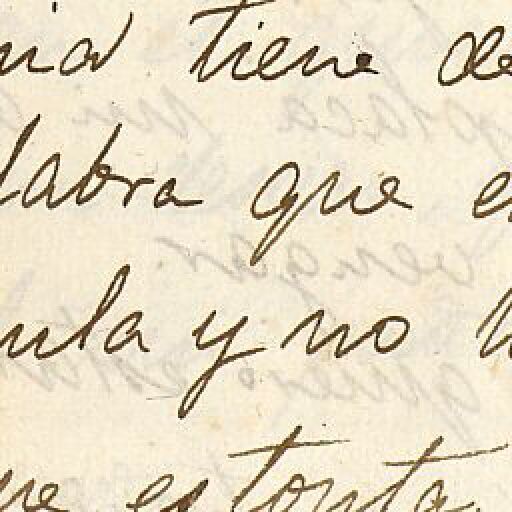 tiene de
labra que e
ula y no
ue es tonta.